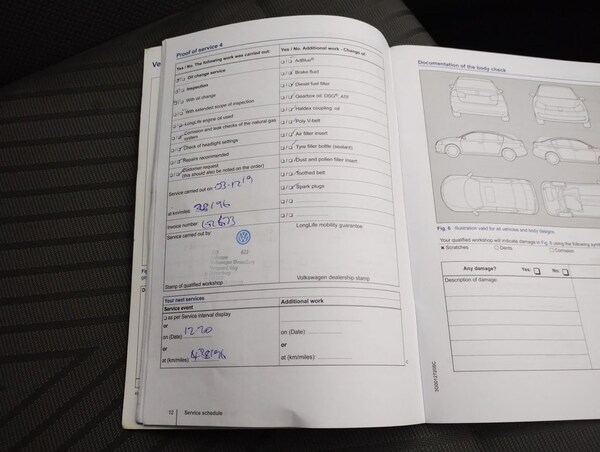 Proof of service 4
Yes / No. The following work was carried out:
Oil change service
Inspection
With oil change
With extended scope of inspection
LongLife engine oil used
Corrosion and leak checks of the natural gas
system
Check of headlight settings
Repairs recommended
Customer request
(this should also be noted on the order)
Service carried out on
at km/miles:
Invoice number
Service carried out by:
Stamp of qualified workshop
Yes / No. Additional work - Change of:
AdBlue®
Brake fluid
Diesel fuel filter
Gearbox oil: DSG®, ATF
Haldex coupling: oil
Poly V-belt
Air filter insert
Tyre filler bottle (sealant)
Dust and pollen filter insert
Toothed belt
Spark plugs
LongLife mobility guarantee
Volkswagen dealership stamp
Your next services
Service event
as per Service interval display
or
on (Date): 12-20
or
at (km/miles):
Additional work
on (Date):
or
at (km/miles):
12 Service schedule
Documentation of the body check
Fig. 6 Illustration valid for all vehicles and body designs.
Your qualified workshop will indicate damage in Fig. 6 using the following
Scratches Dents Corrosion
Any damage? Yes: No:
Description of damage: